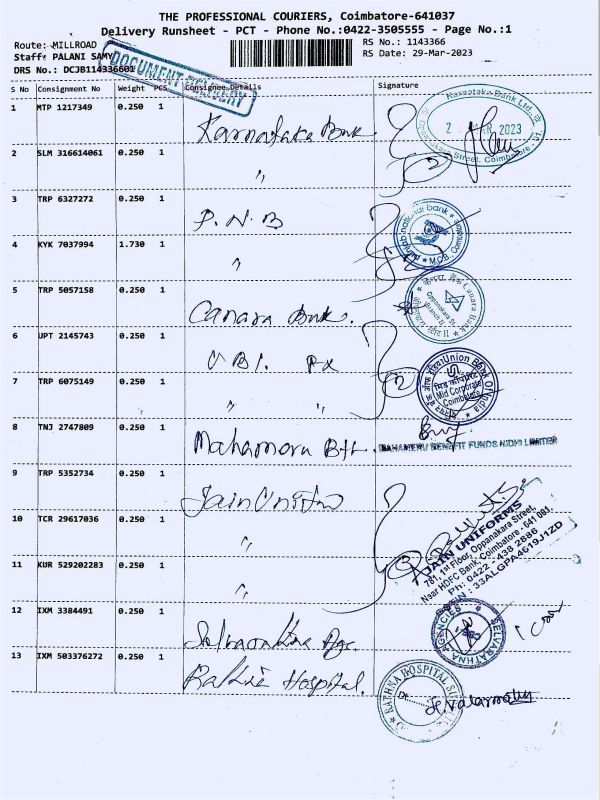 THE PROFESSIONAL COURIERS, Coimbatore-641037
Delivery Runsheet - PCT - Phone No.:0422-3505555 - Page No.:1
Route: MILLROAD
RS No.: 1143366
Staff: PALANI SAMY
RS Date: 29-Mar-2023
DRS No.: DCJB114336601
DOCUMENT DELIVERY
S No Consignment No Weight PCS Consignee Details Signature
1 MTP 1217349 0.250 1 Karnataka Bank
Karnataka Bank Ltd.
2023
Street, Coimbatore
2 SLM 316614061 0.250 1 "
3 TRP 6327272 0.250 1 P.N.B
punjab national bank
M.C.B. Coimbatore
4 KYK 7037994 1.730 1 "
5 TRP 5057158 0.250 1 Canara Bank.
Canara Bank
Oppanakara St.
Branch II
6 UPT 2145743 0.250 1 UBI.
Union Bank Of India
Mid Corporate
Coimbatore
7 TRP 6075149 0.250 1 " "
8 TNJ 2747809 0.250 1
MAHAMERU BENEFIT FUNDS NIDHI LIMITED
9 TRP 5352734 0.250 1 Jain Uniform
JAIN UNIFORMS
781, 1st Floor, Oppanakara Street,
Near HDFC Bank, Coimbatore - 641 001.
Ph: 0422 - 438 2886
33ALGPA4619J1ZD
10 TCR 29617036 0.250 1 "
11 KUR 529202283 0.250 1 "
12 IXM 3384491 0.250 1
SELVARATHNA AGENCIES
13 IXM 503376272 0.250 1 Rathna Hospital.
RATHNA HOSPITAL